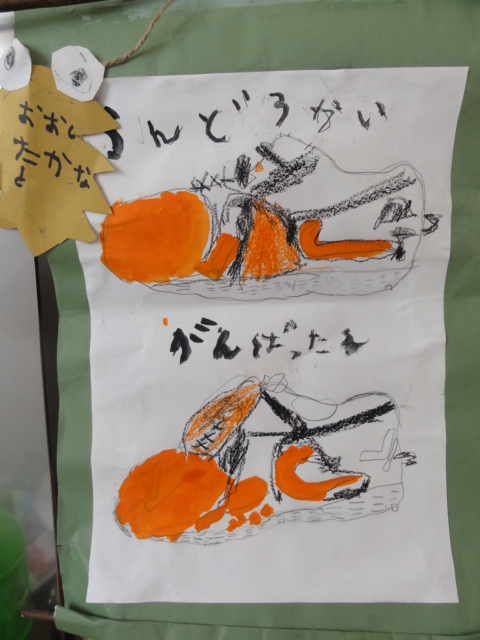 おおい
たかな
と
うんどうかい
がんばったよ